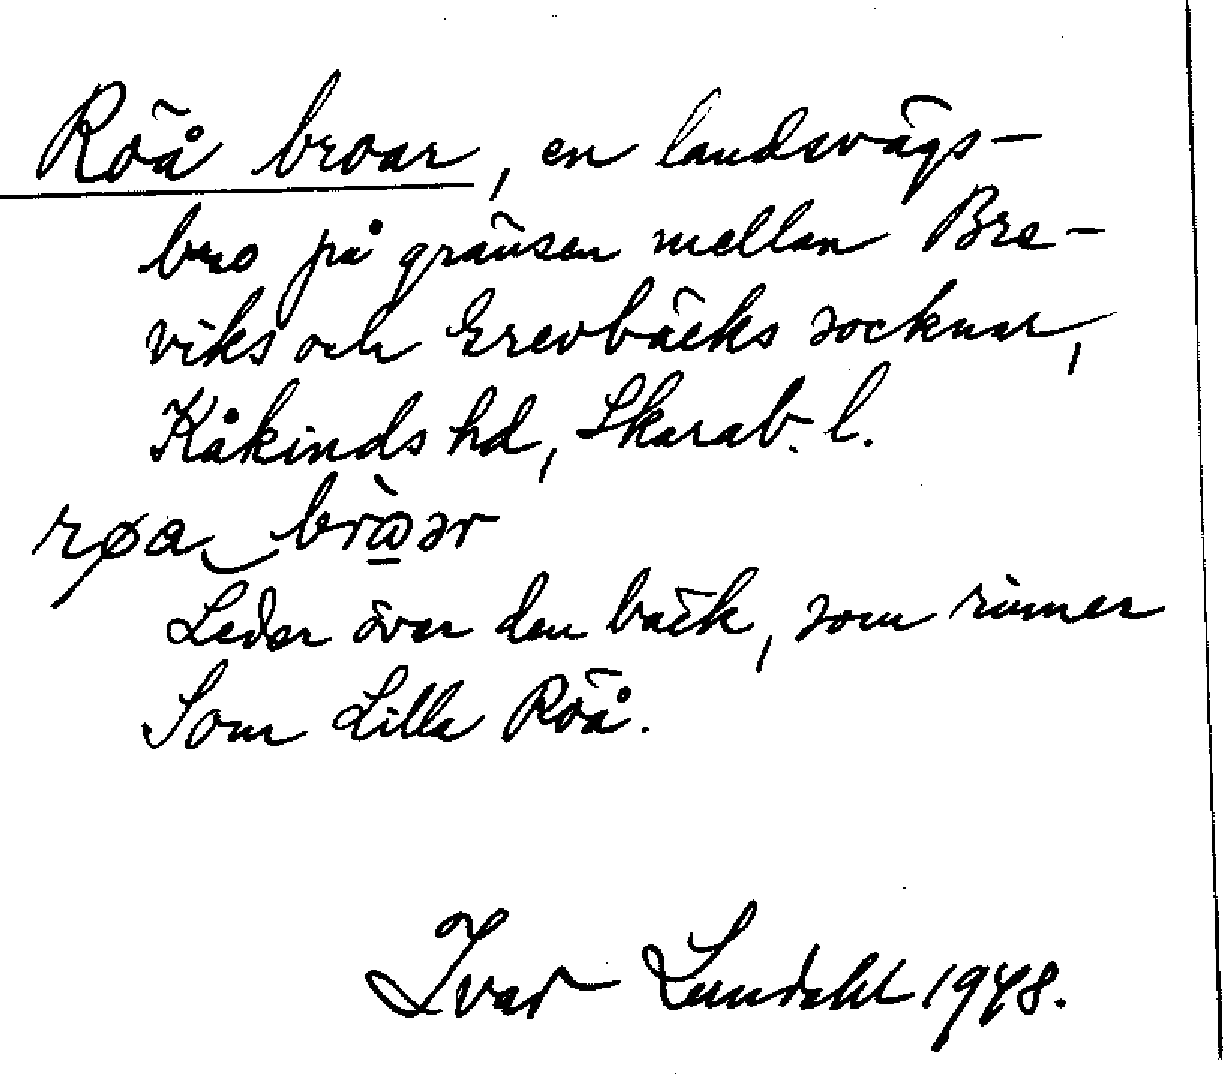 Röå broar, en landsvägs-
bro på gränsen mellan Bre-
viks och Grevbäcks socknar,
Kåkinds hd, Skarab. l.
røa bròər
Leder över den bäck, som rinner
Som Lilla Röå.
Ivar Lundahl 1948.